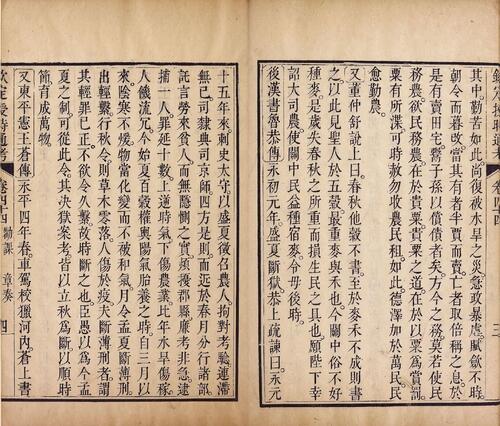 其中勤苦如此尚復被水旱之災急政暴虐賦斂不時
朝令而暮改當其有者半賈而賣亡者取倍稱之息於
是有賣田宅鬻子孫以償債者矣方今之務莫若使民
務農欲民務農在於貴粟貴粟之道在於以粟為賞罰
粟有所渫可時赦勿收農民租如此德澤加於萬民民
愈勤農
又董仲舒說上曰春秋他穀不書至於麥禾不成則書
之以此見聖人於五穀最重麥與禾也今關中俗不好
種麥是歲失春秋之所重而損生民之具也願陛下幸
詔大司農使關中民益種宿麥令毋後時
後漢書魯恭傳永初元年盛夏斷獄恭上疏諫曰永元
十五年來刺史太守以盛夏徵召農人拘對考驗連滯
無已司隸典司京師四方是則而近於春月分行諸部
託言勞來貧人而無隱惻之實煩擾郡縣廉考非急逮
捕一人罪延十數上逆時氣下傷農業比年水旱傷稼
人饑流冗今始夏百穀權輿陽氣胎養之時自三月以
來陰寒不煖物當化變而不被和氣月令孟夏斷薄刑
出輕繫行秋令則草木零落人傷於疫夫斷薄刑者謂
其輕罪已正不欲令久繫故時斷之也臣愚以為今孟
夏之制可從此令其決獄案考皆以立秋為斷以順時
節育成萬物
又東平憲王蒼傳永平四年春車駕校獵河內蒼上書
欽定授時通考 卷四十四 勸課 章奏 四